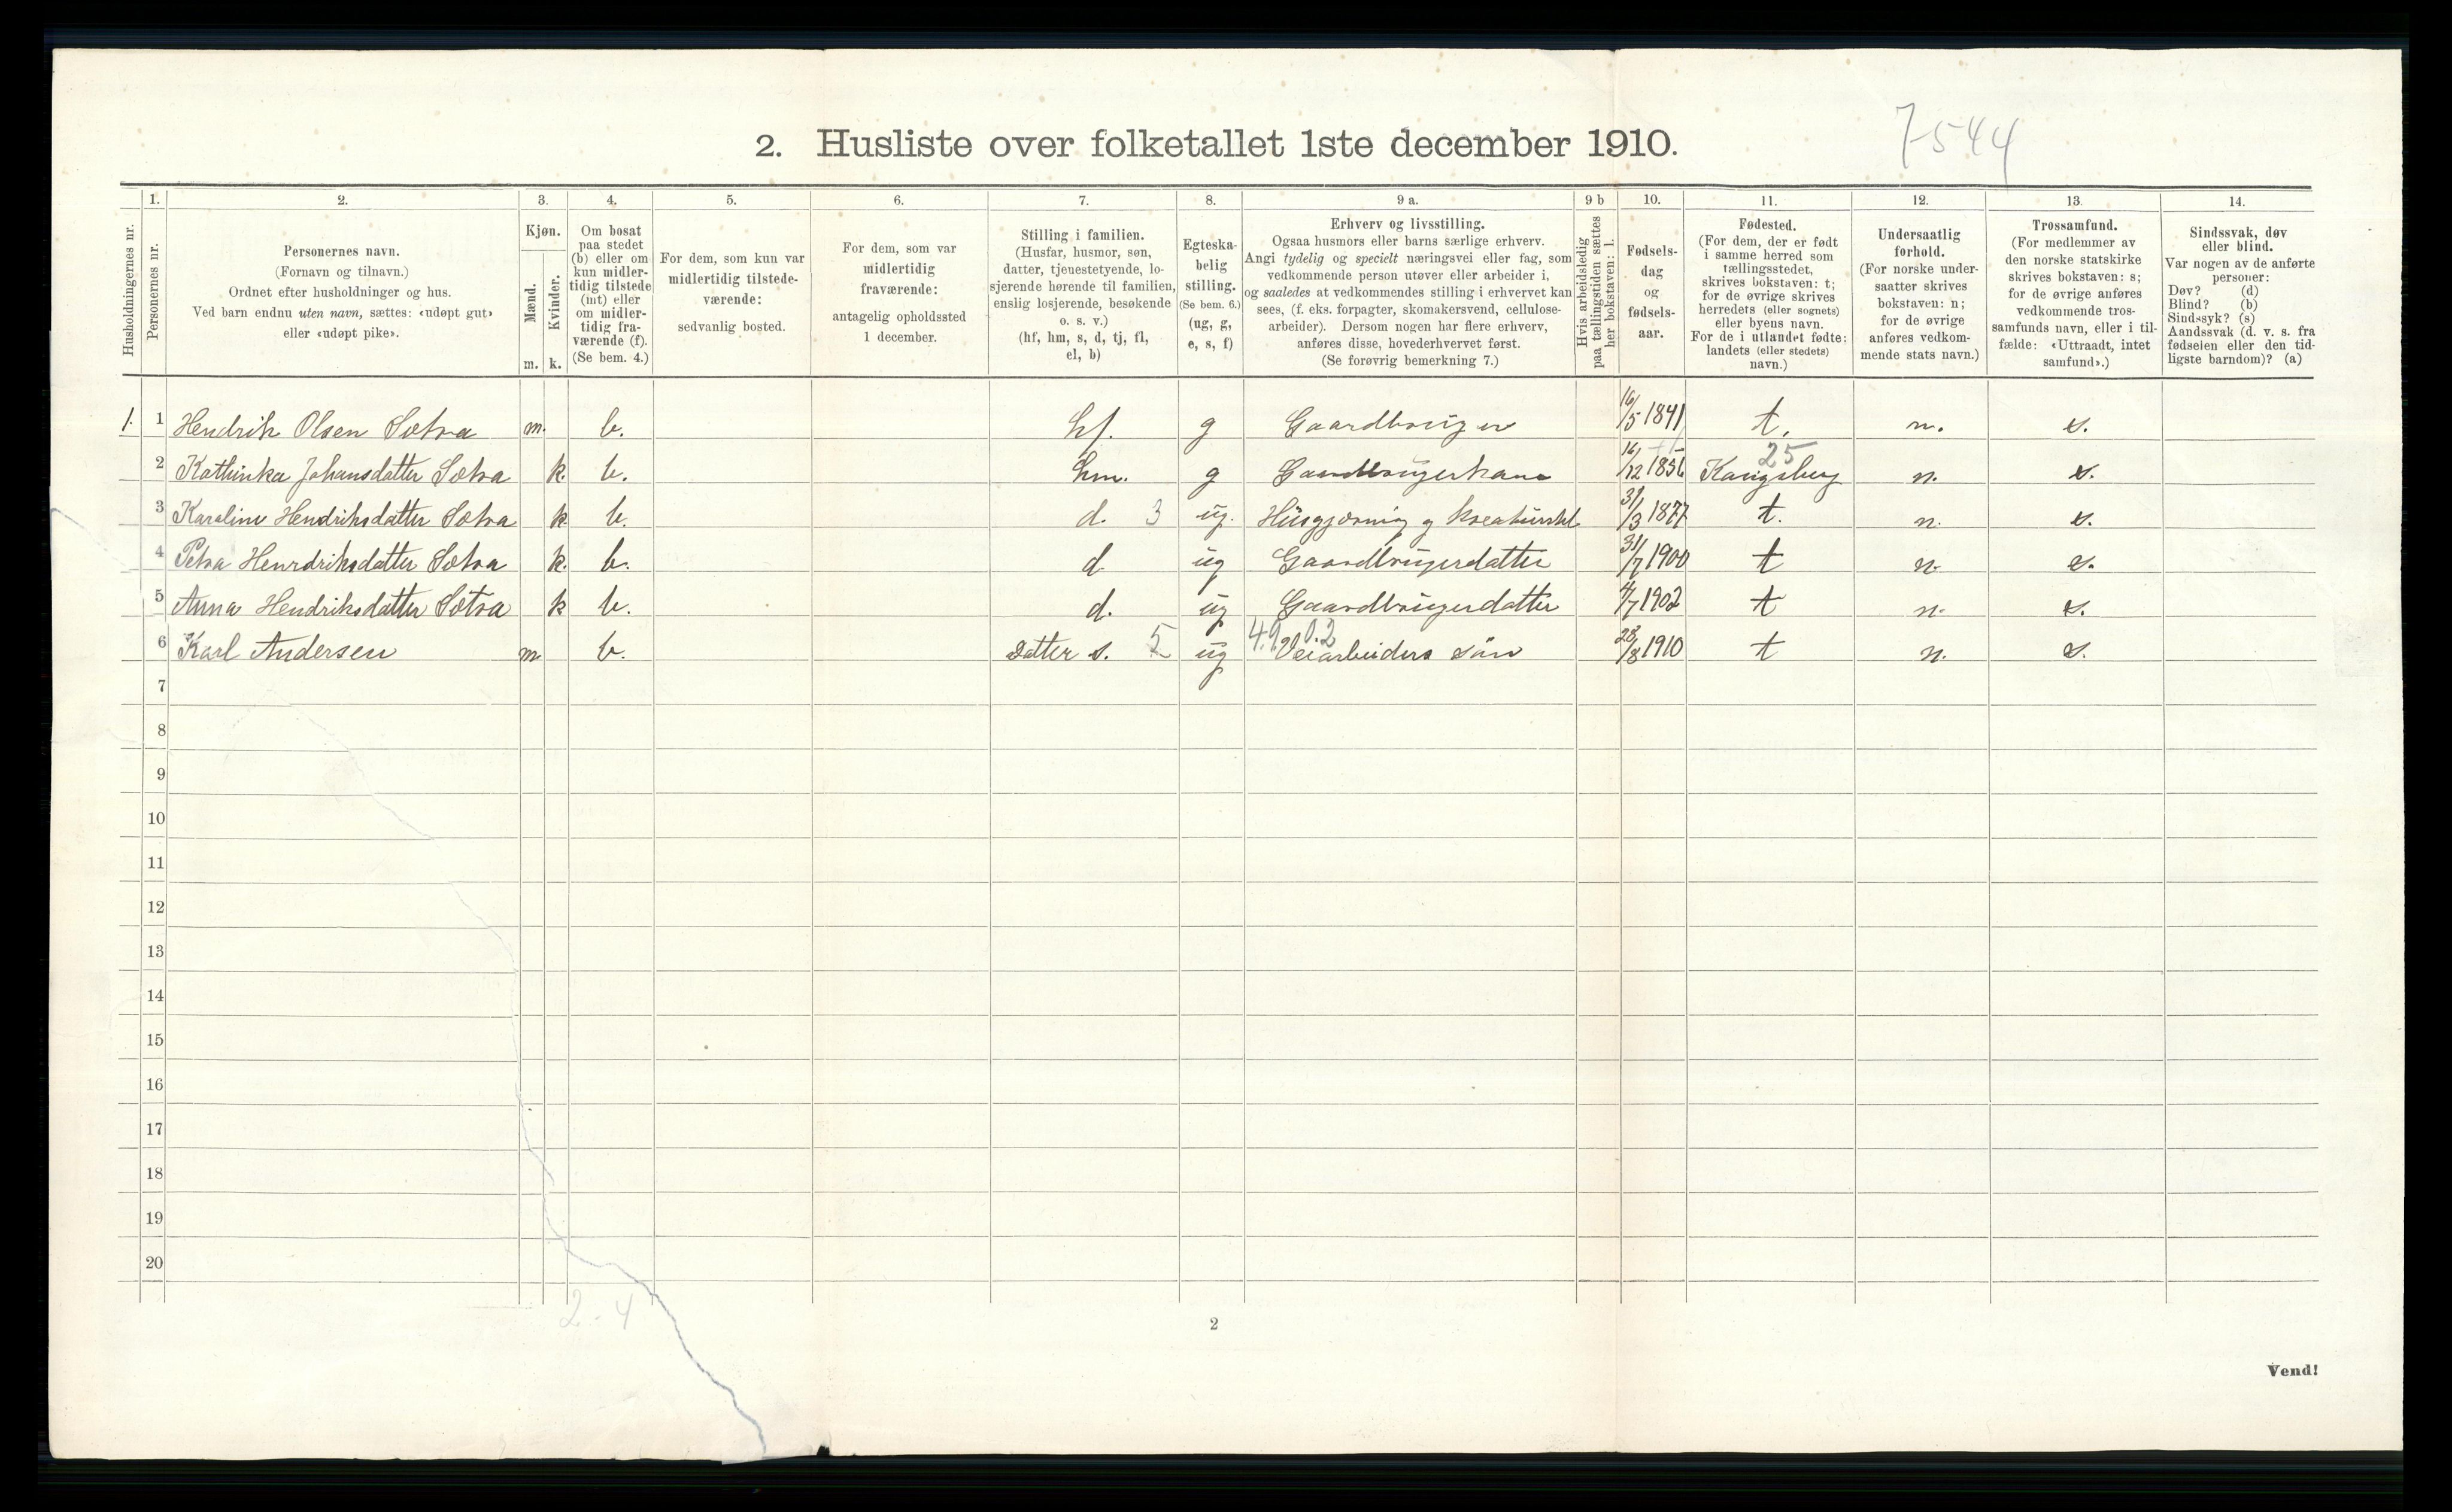 7544
2. Husliste over folketallet 1ste december 1910.
1. 2. 3. 4. 5. 6. 7. 8. 9 a. 9 b 10. 11. 12. 13. 14.
Husholdningernes nr.
Personernes nr.
Personernes navn.
(Fornavn og tilnavn.)
Ordnet efter husholdninger og hus.
Ved barn endnu uten navn, sættes: «udøpt gut»
eller «udøpt pike».
Kjøn.
Mænd.
Kvinder.
m. k.
Om bosat
paa stedet
(b) eller om
kun midler-
tidig tilstede
(mt) eller
om midler-
tidig fra-
værende (f).
(Se bem. 4.)
For dem, som kun var
midlertidig tilstede-
værende:
sedvanlig bosted.
For dem, som var
midlertidig
fraværende:
antagelig opholdssted
1 december.
Stilling i familien.
(Husfar, husmor, søn,
datter, tjenestetyende, lo-
sjerende hørende til familien,
enslig losjerende, besøkende
o. s. v.)
(hf, hm, s, d, tj, fl,
el, b)
Egteska-
belig
stilling.
(Se bem. 6.)
(ug, g,
e, s, f)
Erhverv og livsstilling.
Ogsaa husmors eller barns særlige erhverv.
Angi tydelig og specielt næringsvei eller fag, som
vedkommende person utøver eller arbeider i,
og saaledes at vedkommendes stilling i erhvervet kan
sees, (f. eks. forpagter, skomakersvend, cellulose-
arbeider). Dersom nogen har flere erhverv,
anføres disse, hovederhvervet først.
(Se forøvrig bemerkning 7.)
Hvis arbeidsledig
paa tællingstiden sættes
her bokstaven: l.
Fødsels-
dag
og
fødsels-
aar.
Fødested.
(For dem, der er født
i samme herred som
tællingsstedet,
skrives bokstaven: t;
for de øvrige skrives
herredets (eller sognets)
eller byens navn.
For de i utlandet fødte:
landets (eller stedets)
navn.)
Undersaatlig
forhold.
(For norske under-
saatter skrives
bokstaven: n;
for de øvrige
anføres vedkom-
mende stats navn.)
Trossamfund.
(For medlemmer av
den norske statskirke
skrives bokstaven: s;
for de øvrige anføres
vedkommende tros-
samfunds navn, eller i til-
fælde: «Uttraadt, intet
samfund».)
Sindssvak, døv
eller blind.
Var nogen av de anførte
personer:
Døv? (d)
Blind? (b)
Sindssyk? (s)
Aandssvak (d. v. s. fra
fødselen eller den tid-
ligste barndom)? (a)
1. 1 Hendrik Olsen Sætra m. b. hf. g Gaardbruger 16/5 1841 t. n. s.
25
2 Kathinka Johansdatter Sætra k. b. hm. g Gaardbrugerkane 16/12 1856 Kongsberg n. s.
3 Karoline Hendriksdatter Sætra k b. d. 3 ug. Husgjærning og kreaturstel 31/3 1877 t. n. s.
4 Petra Henrdriksdatter Sætra k. b. d ug Gaardbrugerdatter 31/7 1900 t n. s.
5 Anna Hendriksdatter Sætra k b. d. ug Gaardbrugerdatter 4/7 1902 t n. s.
6 Karl Andersen m b. Datter s. 5 ug Veiarbeiders søn 28/8 1910 t n. s.
7
8
9
10
11
12
13
14
15
16
17
18
19
20
2-4
2
Vend!